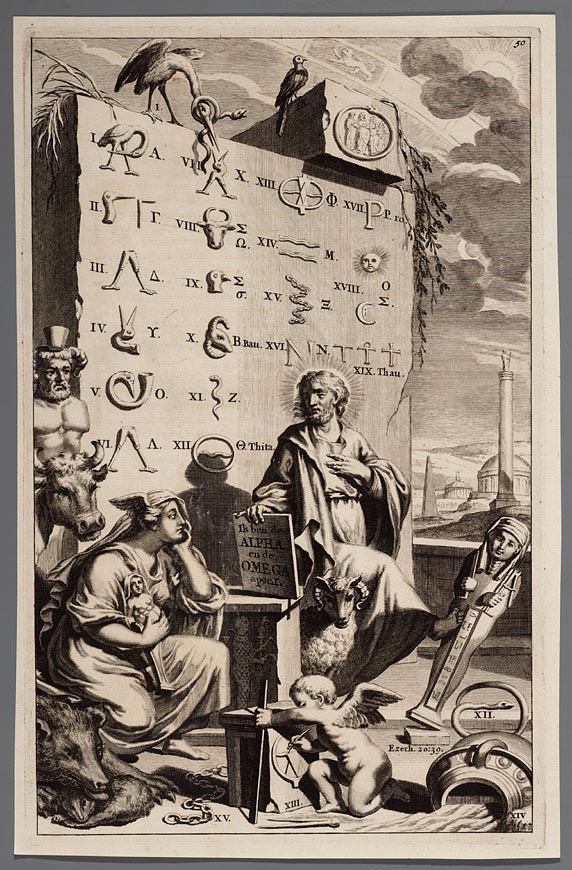 50
I.
I. A.
VII. X.
XIII. Φ.
XVII. P. ro.
II. Γ
VIII. Σ
Ω.
XIV. M.
III. Δ
IX. Σ
σ.
XV. Ξ.
XVIII. O
Σ.
IV. Υ.
X. B Bau.
XVI. N
XIX. Thau.
V. O.
XI. Z.
VI. Λ.
XII. Θ. Thita.
Ik ben de
ALPHA
en de
OMEGA
apoc. I.
XII.
Ezech. 20:39.
XIII.
XV.
XIV